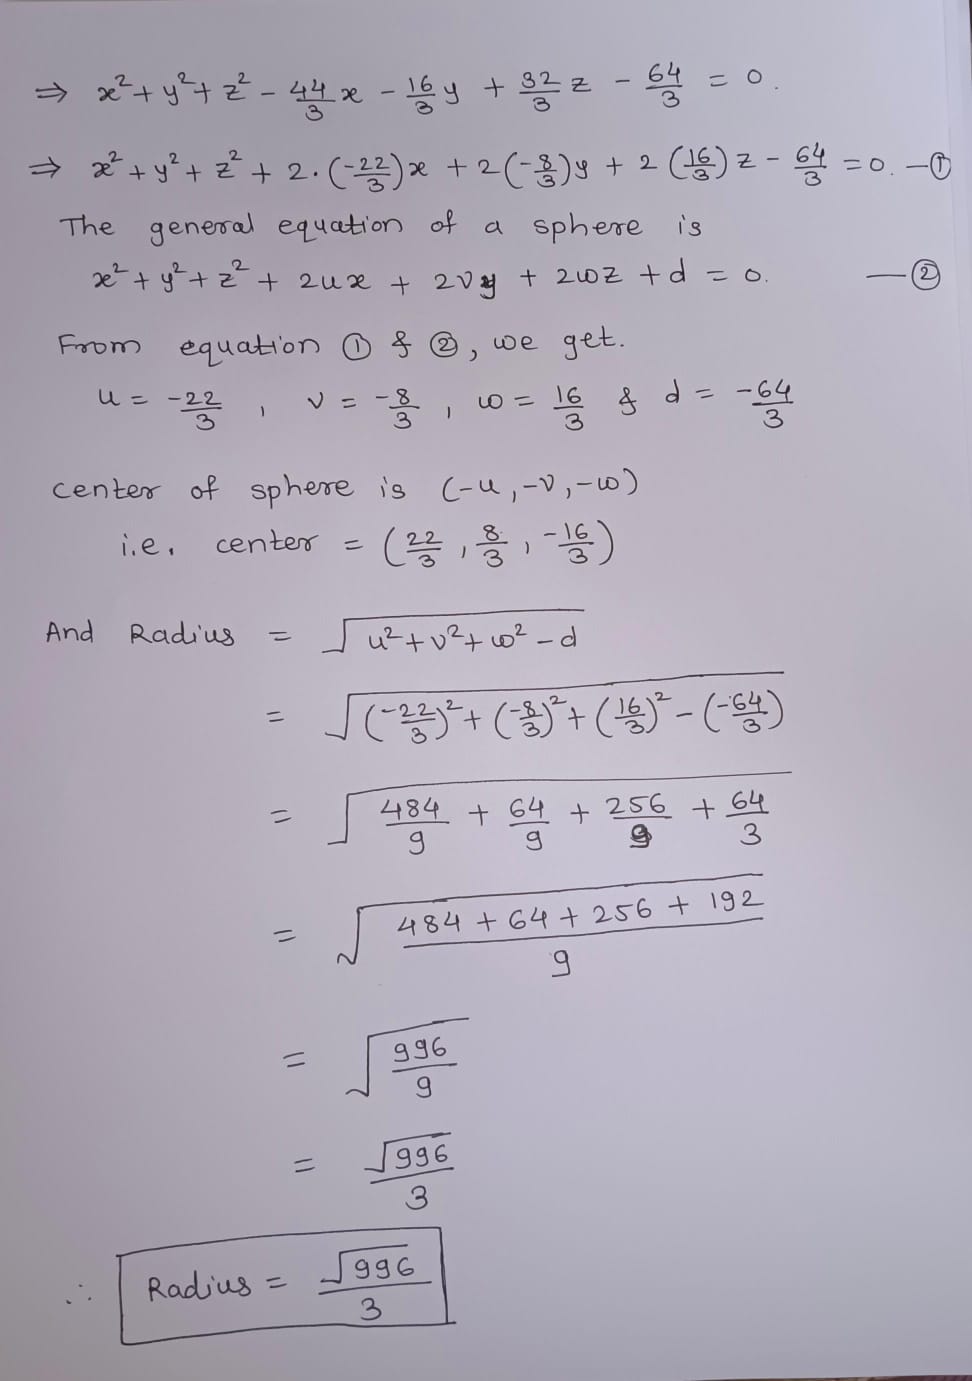 ⇒ x² + y² + z² - 44/3 x - 16/3 y + 32/3 z - 64/3 = 0.
⇒ x² + y² + z² + 2·(-22/3)x + 2(-8/3)y + 2(16/3)z - 64/3 = 0. —①
The general equation of a sphere is
x² + y² + z² + 2ux + 2vy + 2wz + d = 0. —②
From equation ① & ②, we get.
u = -22/3 , v = -8/3 , w = 16/3 & d = -64/3
center of sphere is (-u, -v, -w)
i.e. center = (22/3 , 8/3 , -16/3)
And Radius = √(u² + v² + w² - d)
= √((-22/3)² + (-8/3)² + (16/3)² - (-64/3))
= √(484/9 + 64/9 + 256/9 + 64/3)
= √((484 + 64 + 256 + 192)/9)
= √(996/9)
= √996/3
∴ Radius = √996/3